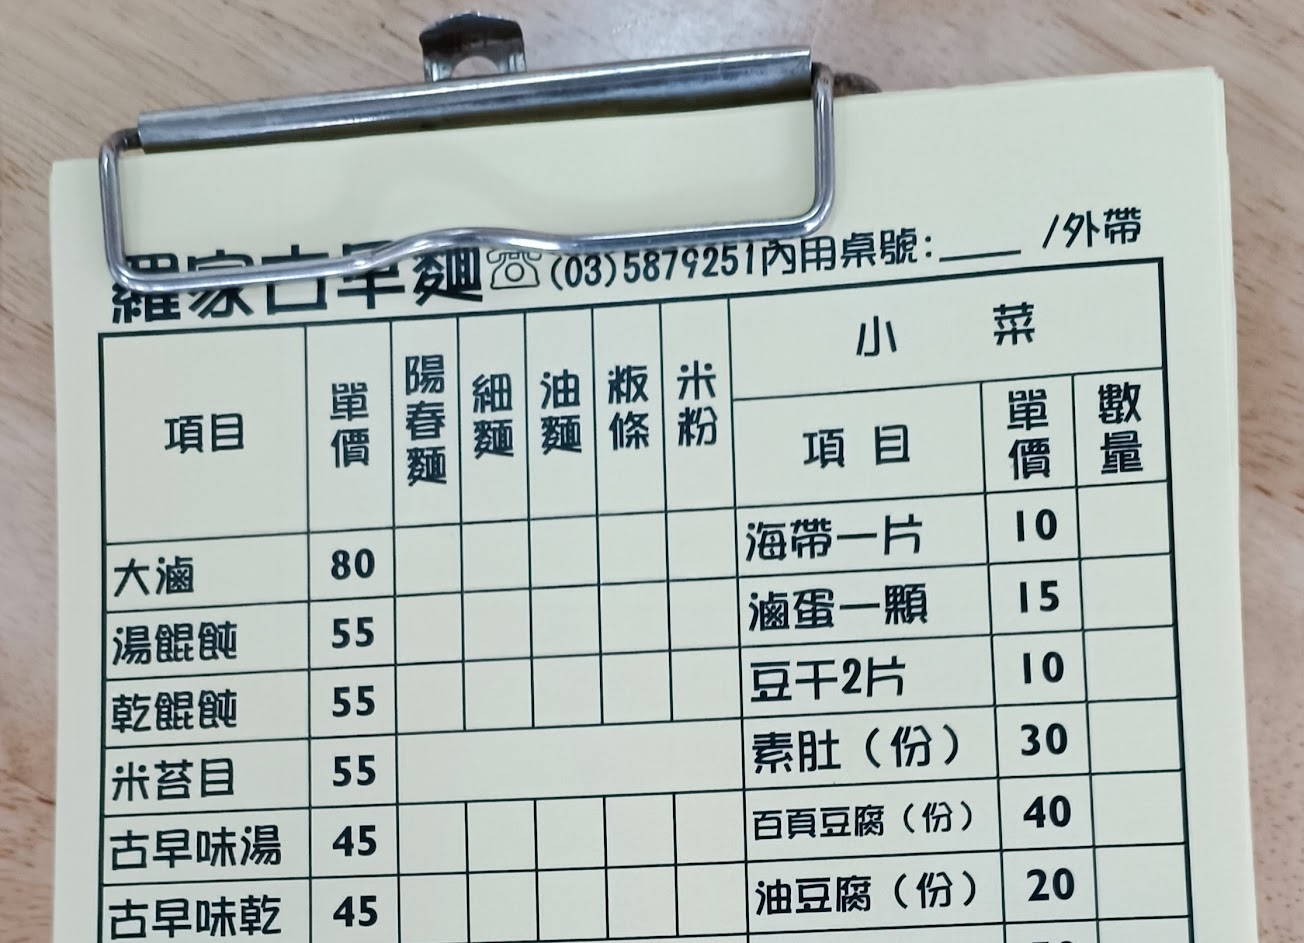 羅家古早麵☏(03)5879251內用桌號:____ /外帶
項目 單價 陽春麵 細麵 油麵 粄條 米粉
小菜
項目 單價 數量
大滷 80
湯餛飩 55
乾餛飩 55
米苔目 55
古早味湯 45
古早味乾 45
海帶一片 10
滷蛋一顆 15
豆干2片 10
素肚（份） 30
百頁豆腐（份） 40
油豆腐（份） 20